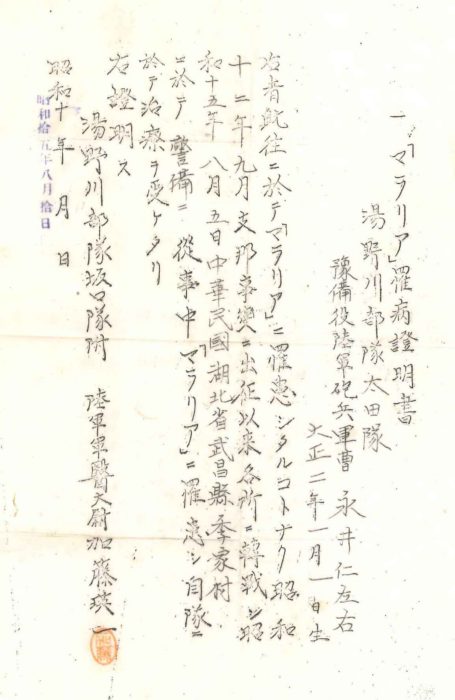 一、「マラリア」罹病證明書
湯野川部隊太田隊
豫備役陸軍砲兵軍曹 永井仁左右
大正二年一月一日生
右者既往ニ於テ「マラリア」ニ罹患シタルコトナク昭和
十二年九月支那事變ニ出征以来各所ニ轉戦シ昭
和十五年八月五日中華民國湖北省武昌縣李家村
ニ於テ警備ニ從事中「マラリア」ニ罹患シ自隊ニ
於テ治療ヲ受ケタリ
右證明ス
昭和十年 月 日
昭和拾五年八月拾日
湯野川部隊坂口隊附 陸軍軍醫大尉加藤瑛一